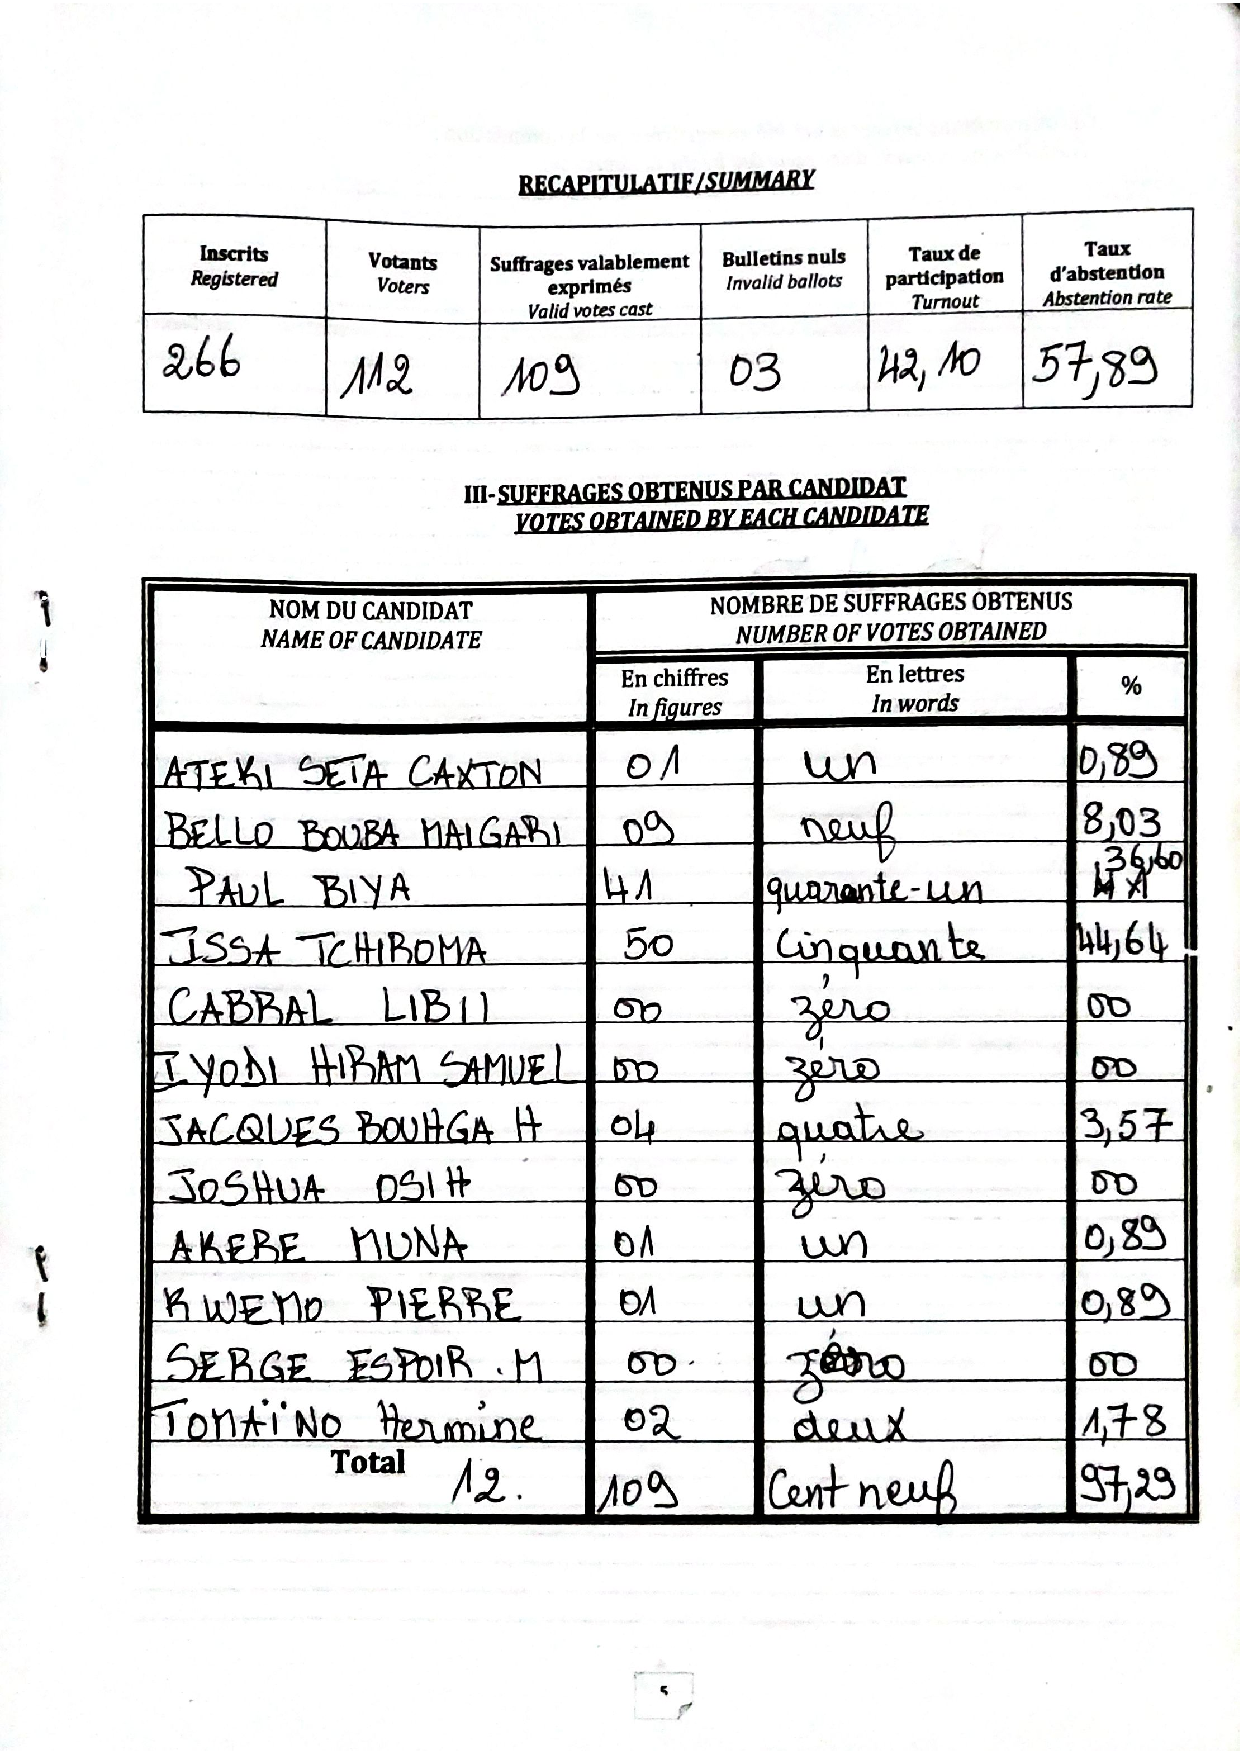 RECAPITULATIF/SUMMARY
Inscrits Registered
Votants Voters
Suffrages valablement exprimés Valid votes cast
Bulletins nuls Invalid ballots
Taux de participation Turnout
Taux d'abstention Abstention rate
266 112 109 03 42,10 57,89
III-SUFFRAGES OBTENUS PAR CANDIDAT
VOTES OBTAINED BY EACH CANDIDATE
NOM DU CANDIDAT
NAME OF CANDIDATE
NOMBRE DE SUFFRAGES OBTENUS
NUMBER OF VOTES OBTAINED
En chiffres In figures
En lettres In words
%
ATEKI SETA CAXTON 01 un 0,89
BELLO BOUBA MAIGARI 09 neuf 8,03
PAUL BIYA 41 quarante-un 36,60
ISSA TCHIROMA 50 Cinquante 44,64
CABRAL LIBII 00 zéro 00
IYODI HIRAM SAMUEL 00 zéro 00
JACQUES BOUHGA H 04 quatre 3,57
JOSHUA OSIH 00 zéro 00
AKERE MUNA 01 un 0,89
KWEMO PIERRE 01 un 0,89
SERGE ESPOIR . M 00 zéro 00
TOMAÏNO Hermine 02 deux 1,78
Total 12. 109 Cent neuf 97,29
5